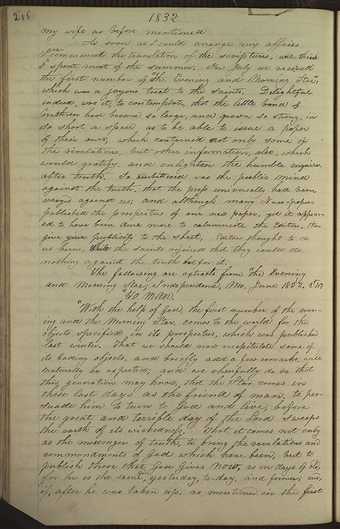 216
1832
my wife as before mentioned
As soon as I could arrange my affairs
I recommenced the translation of the scriptures, and thus
I spent most of the summer. In July we received
the first number of "The Evening and Morning Star",
which was a joyous treat to the Saints. Delightful
indeed, was it, to contemplate, that the little band of
brethren had become so large, and grown so strong, in
so short a space, as to be able to issue a paper
of their own, which contained not only some of
the revelations, but other information, also, which
would gratify, and enlighten the humble enquirer
after truth. So embittered was the public mind
against the truth, that the press universally had been
arrayed against us; and although many News-papers
published the prospectus of our new paper, yet it appear-
ed to have been done more to calumniate the Editor, than
give publicity to the sheet, Editors thought to
us harm, While the saints rejoiced that they could do
nothing against the truth but for it.
The following are extracts from The Evening
and Morning Star, Independence, Mo, June 1832.
To Man.
"With the help of God, the first number of the even-
ing and the Morning Star, comes to the world for the
objects specified, in its prospectus, which was published
last winter. That we should now recapitulate some of
its leading objects, and briefly add a few remarks, will
naturally be expected; and we cheerfully do so that
this generation may know, that the Star comes in
these last days as the friend of man, to per-
suade him to turn to God and live, before
the great and terrible day of the Lord sweeps
the earth of its wickedness. That it comes not only
as the messenger of truth, to bring the revelations and
commandments of God which have been, but to
publish those that God gives Now, as in days of old,
for he is the same yesterday, to day, and forever;
after he was taken up. as mentioned in the first